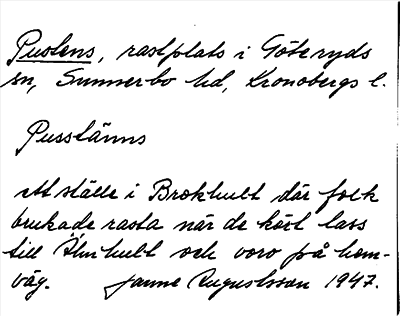 Pustens, rastplats i Göteryds
sn, Sunnerbo hd, Kronobergs l.
Pusstänns
ett ställe i Brokhult där folk
brukade rasta när de kört lass
till Älmhult och voro på hem-
väg. Janne Augustsson 1947.